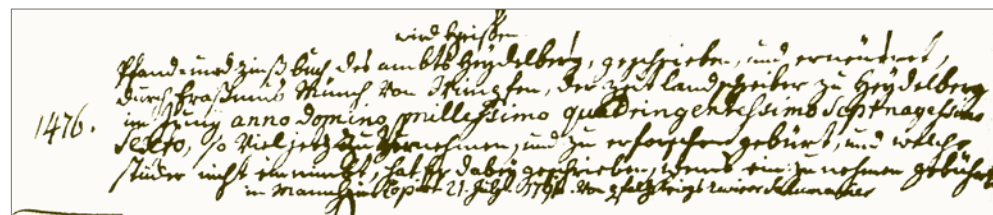 wird heissen
Pfand- und Zinßbuch des ambts Heydelberg, geschrieben, und erneuwret,
durch Eraßmus Münch von Wimpfen, der Zeit landschreiber zu Heydelberg
im Jung anno domino millessimo quadringentessimo Septuagessimo
1476.
Sexto, so viel jetz zu Vernehmen, und zu erforschen gebürt, und welche
stüder nicht einnimbt, hat er dabey geschrieben, wems ein zu nehmen gebührt
in Mannheim Cop 21. July. 179 von